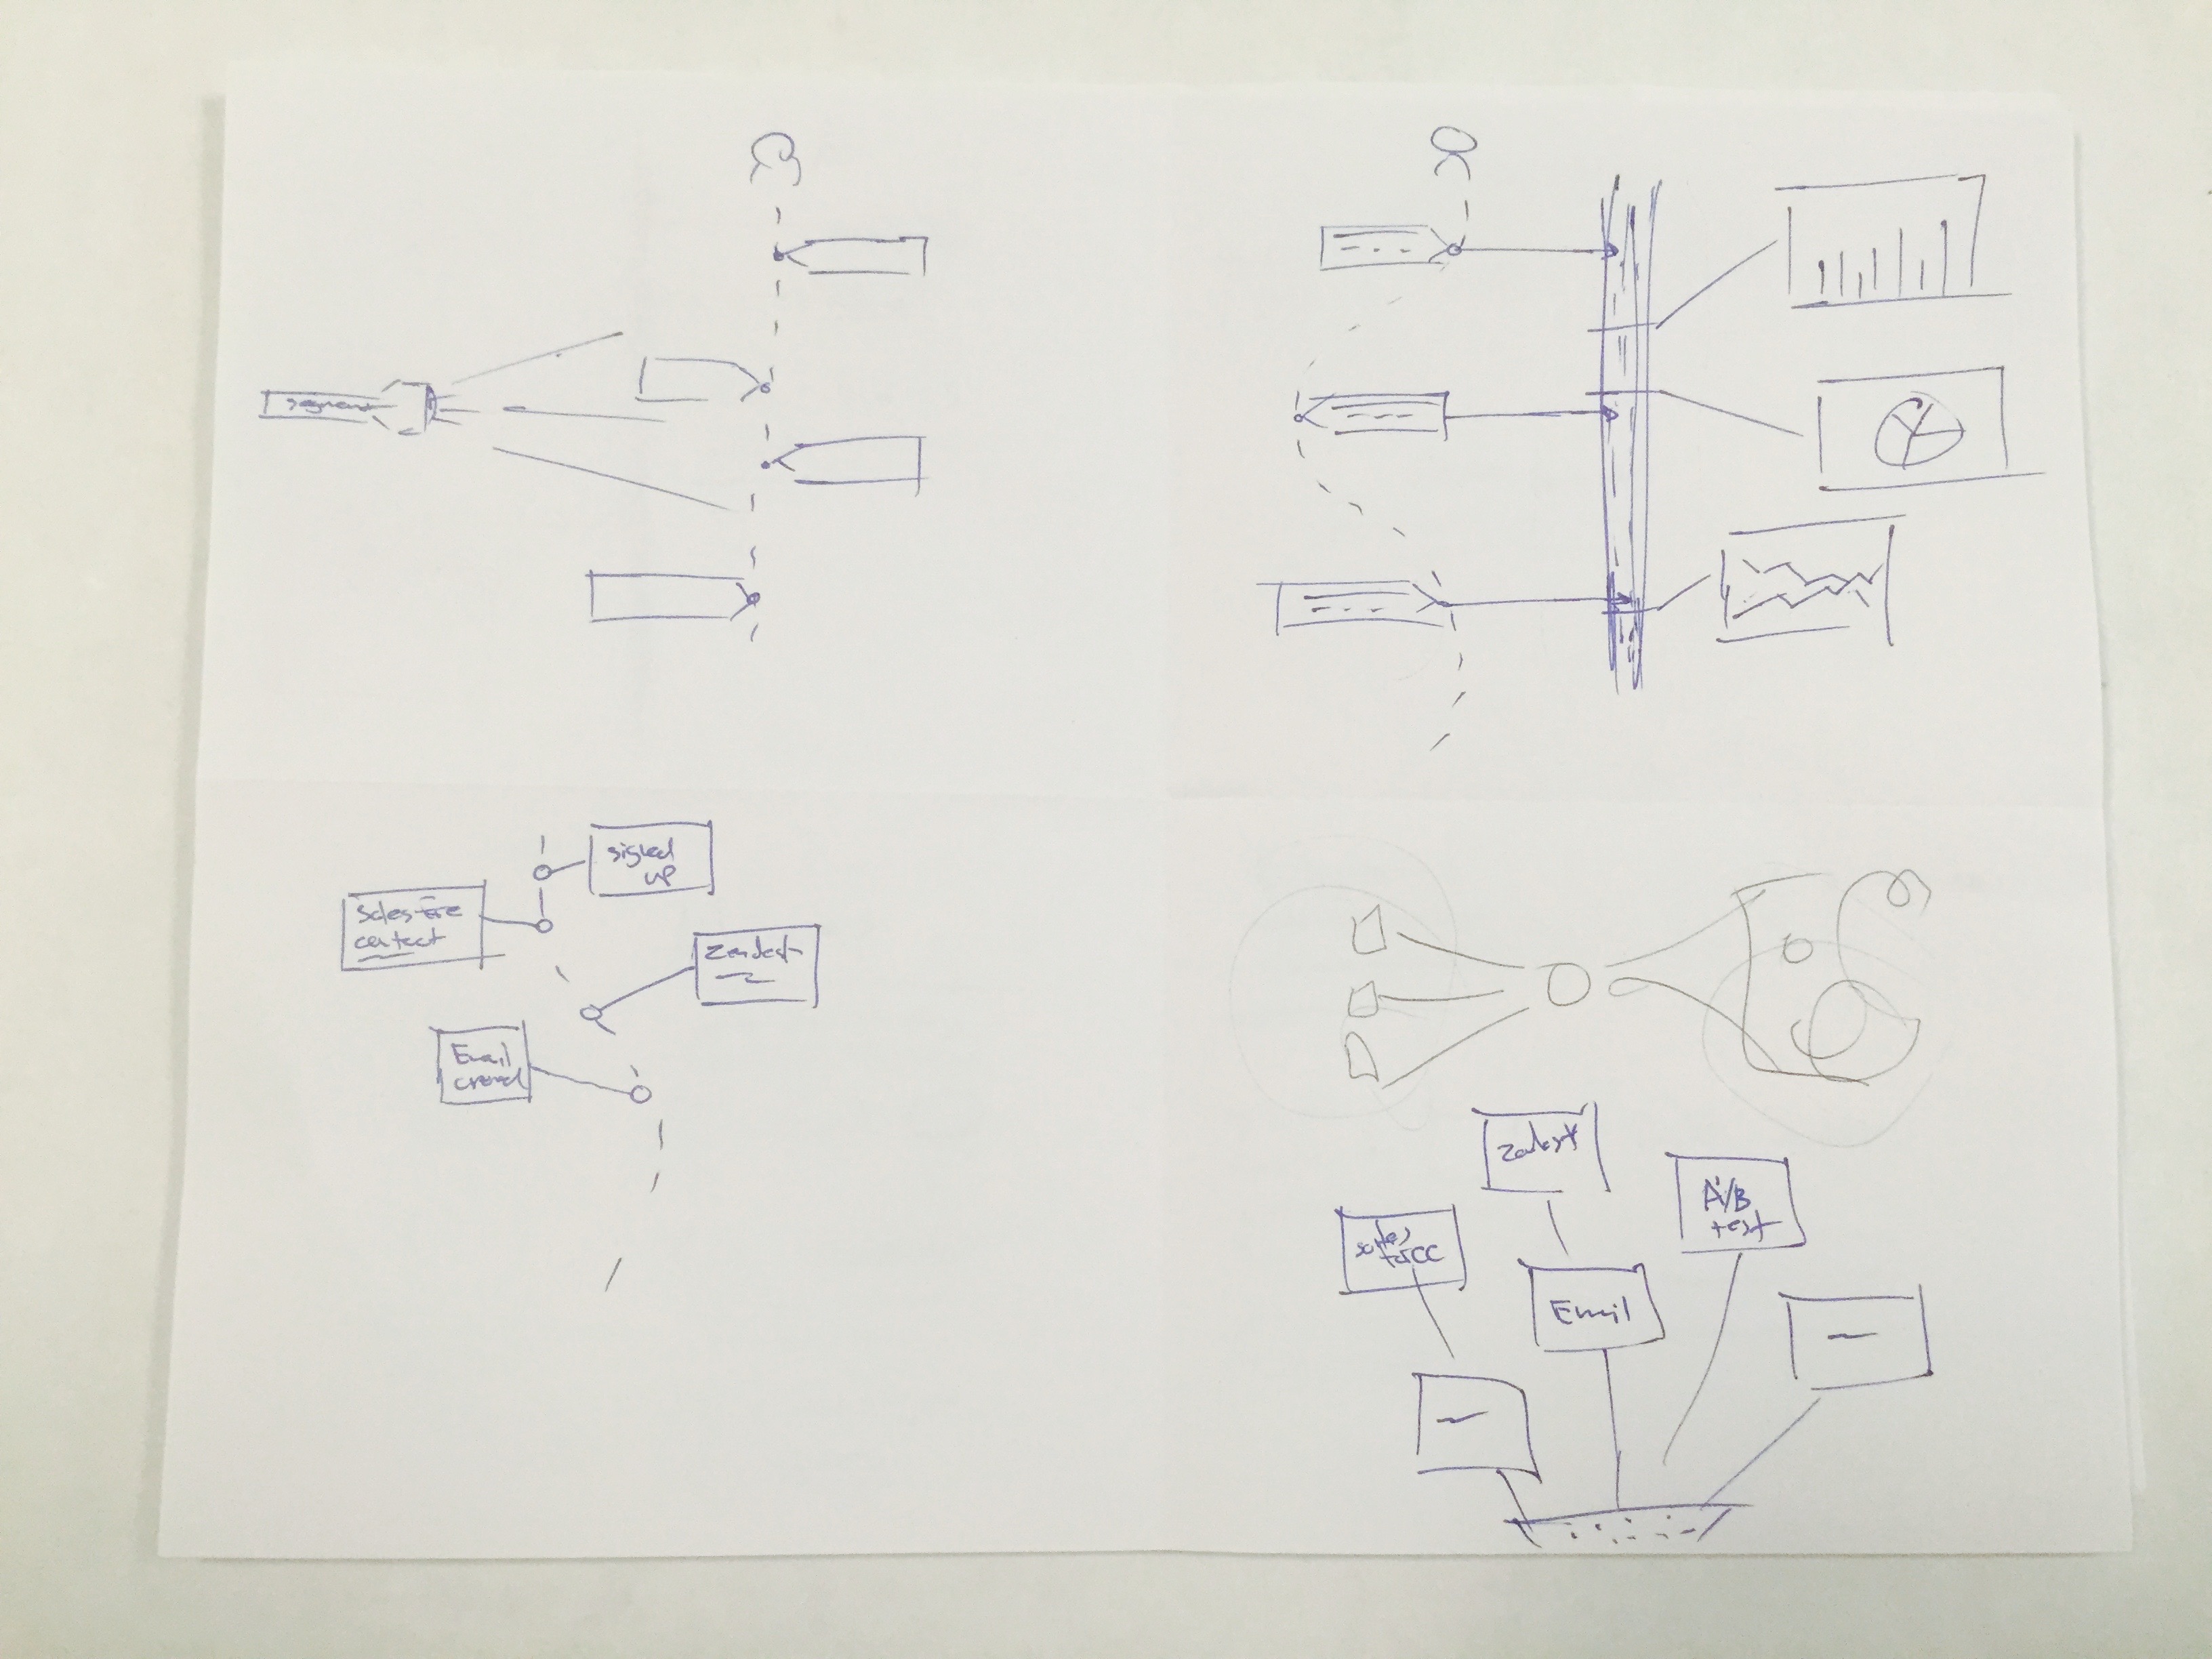 segment
signed
up
Salesforce
contact
Zendesk
Email
opened
Zendesk
A/B
test
sales
force
Email